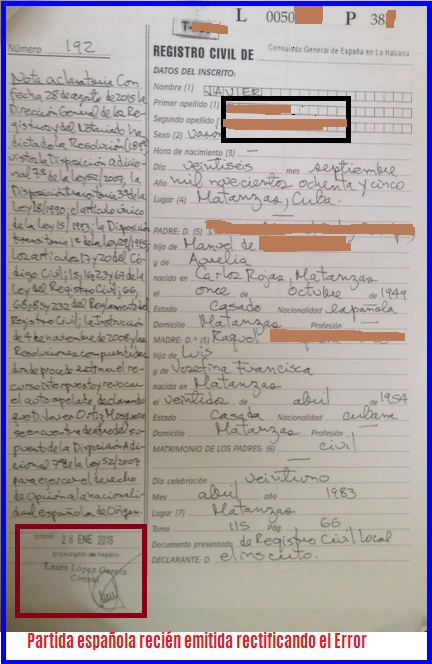 L 0050 P 38
T-
Número 192
REGISTRO CIVIL DE Consulado General de España en La Habana
DATOS DEL INSCRITO:
Nombre (1) JAVIER
Primer apellido (1)
Segundo apellido (
Sexo (2) Varon
Hora de nacimiento (3) —
Día veintiseis mes septiembre
Año mil novecientos ochenta y cinco
Lugar (4) Matanzas, Cuba.
PADRE: D. (5)
hijo de Manuel de
y de Aurelia
nacido en Carlos Rojas, Matanzas
el once de Octubre de 1949
Estado Casado Nacionalidad española
Domicilio Matanzas Profesión —
MADRE: D.ª (5) Raquel
hija de Luis
y de Josefina Francisca
nacida en Matanzas
el veintidos de abril de 1954
Estado Casada Nacionalidad cubana
Domicilio Matanzas Profesión —
MATRIMONIO DE LOS PADRES: (6) civil
Día celebración veintiuno
Mes abril año 1983
Lugar (7) Matanzas
Tomo 115 Pág. 66
Documento presentado de Registro Civil local
DECLARANTE: D. el inscrito.
Nota aclaratoria Con
fecha 28 de agosto de 2015 la
Dirección General de los Re-
gistros y del Notariado ha
dictado la Resolución
vistos la Disposición adicio-
nal 7ª de la Ley 52/2007, la
Disposición transitoria 3ª de la
Ley 18/1990; el artículo único
de la Ley 15/1993; la Disposición
transitoria 1ª de la Ley 29/1995
los artículos 17 y 20 del Có-
digo Civil; 15, 16, 23 y 67 de la
Ley del Registro Civil; 66,
68, 85 y 232 del Reglamento del
Registro Civil; la Instrucción
de 4 de noviembre de 2008 y las
Resoluciones
donde procede estimar el re-
curso interpuesto y revocar
el auto apelado, declarando
que D. Javier Ortiz Mosquera
se encuentra dentro del su-
puesto de la Disposición Adi-
cional 7ª de la Ley 52/2007
para ejercer el derecho
de Opción a la nacionali-
dad española de Origen.
28 ENE 2016
El Encargado del Registro
Laura López García
Cónsul
Partida española recién emitida rectificando el Error